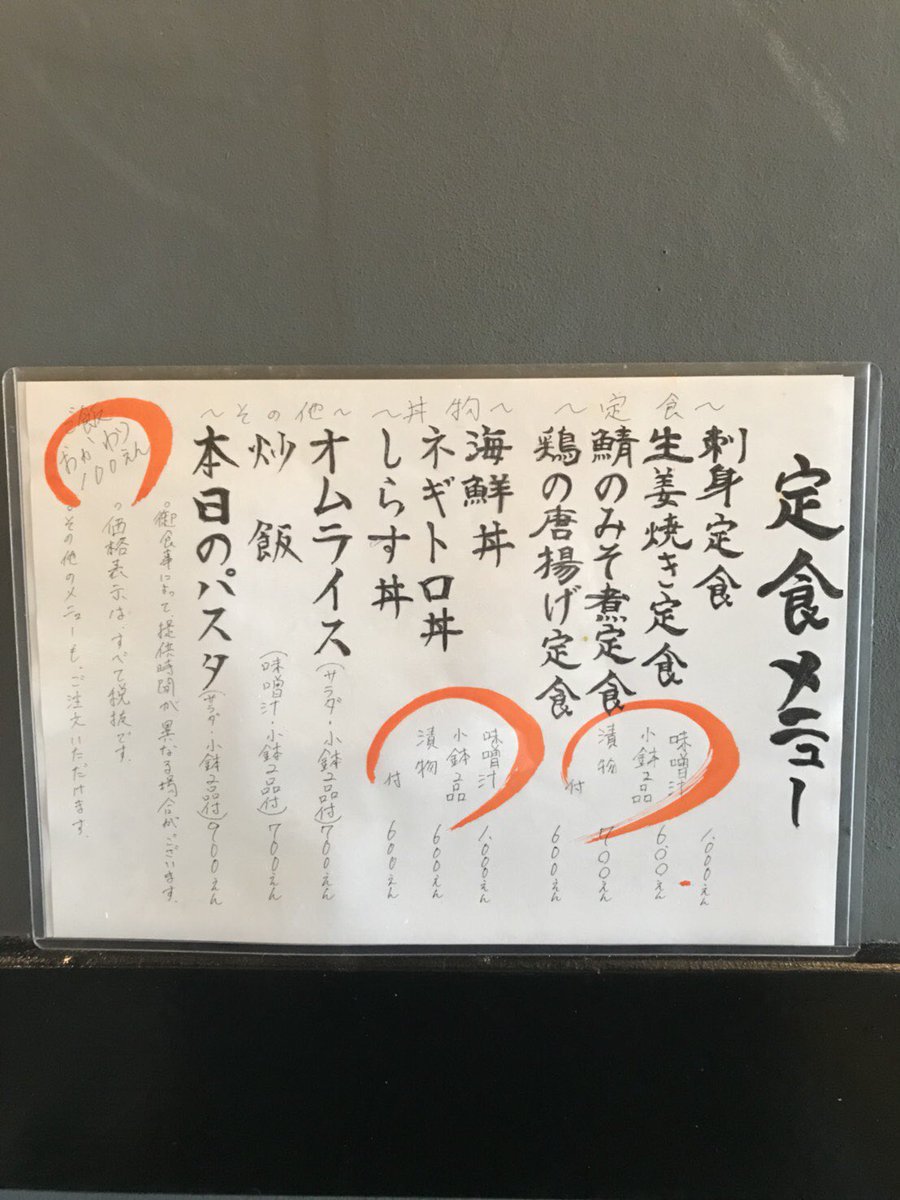 定食メニュー
～定食～
刺身定食 1,000えん
生姜焼き定食 600えん
鯖のみそ煮定食 700えん
鶏の唐揚げ定食 600えん
味噌汁
小鉢2品
漬物
付
～丼物～
海鮮丼 1,000えん
ネギトロ丼 600えん
しらす丼 600えん
味噌汁
小鉢2品
漬物
付
～その他～
オムライス(サラダ・小鉢2品付)700えん
炒飯(味噌汁・小鉢2品付)700えん
本日のパスタ(サラダ・小鉢2品付)900えん
。御食事によって提供時間が異なる場合がございます。
。価格表示は、すべて税抜です。
。その他のメニューも、ご注文いただけます。
ご飯
おかわり
100えん